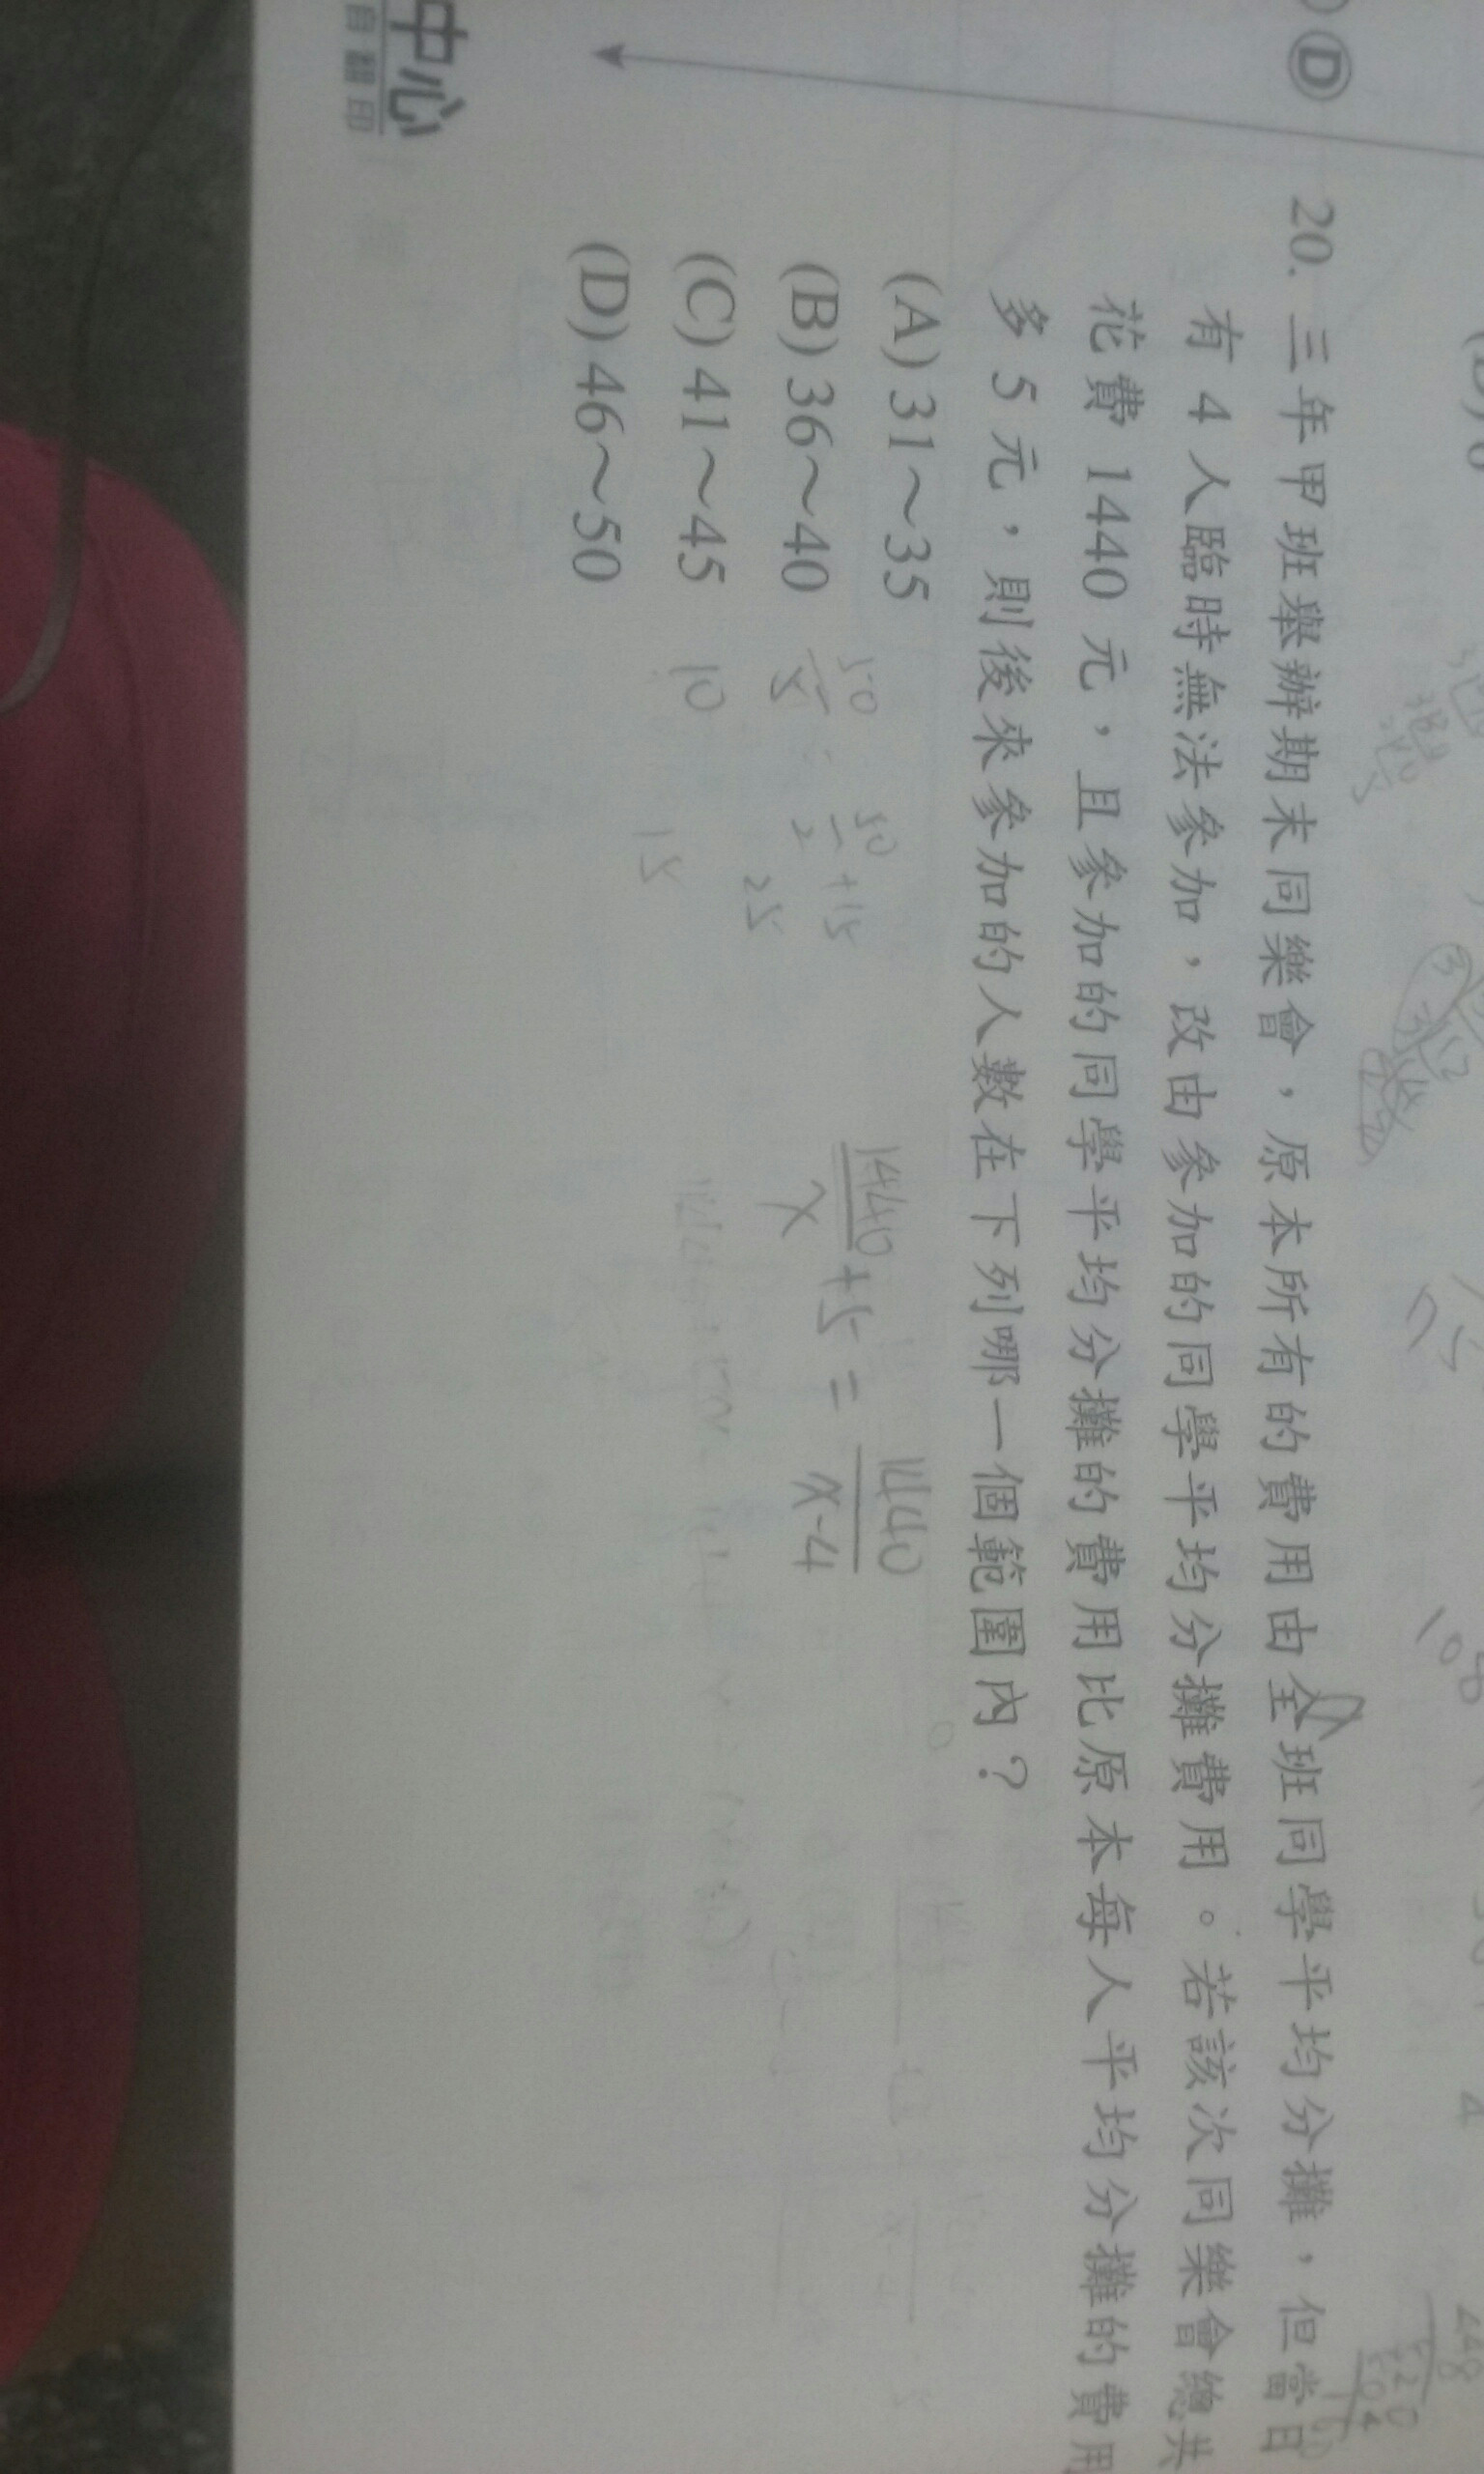 D
20. 三年甲班舉辦期末同樂會，原本所有的費用由全班同學平均分攤，但當日
有 4 人臨時無法參加，改由參加的同學平均分攤費用。若該次同樂會總共
花費 1440 元，且參加的同學平均分攤的費用比原本每人平均分攤的費用
多 5 元，則後來參加的人數在下列哪一個範圍內？
(A) 31～35
(B) 36～40
(C) 41～45
(D) 46～50
50/5
50/2 +15
10
25
15
1440/x +5 = 1440/x-4
108
中心
自翻印